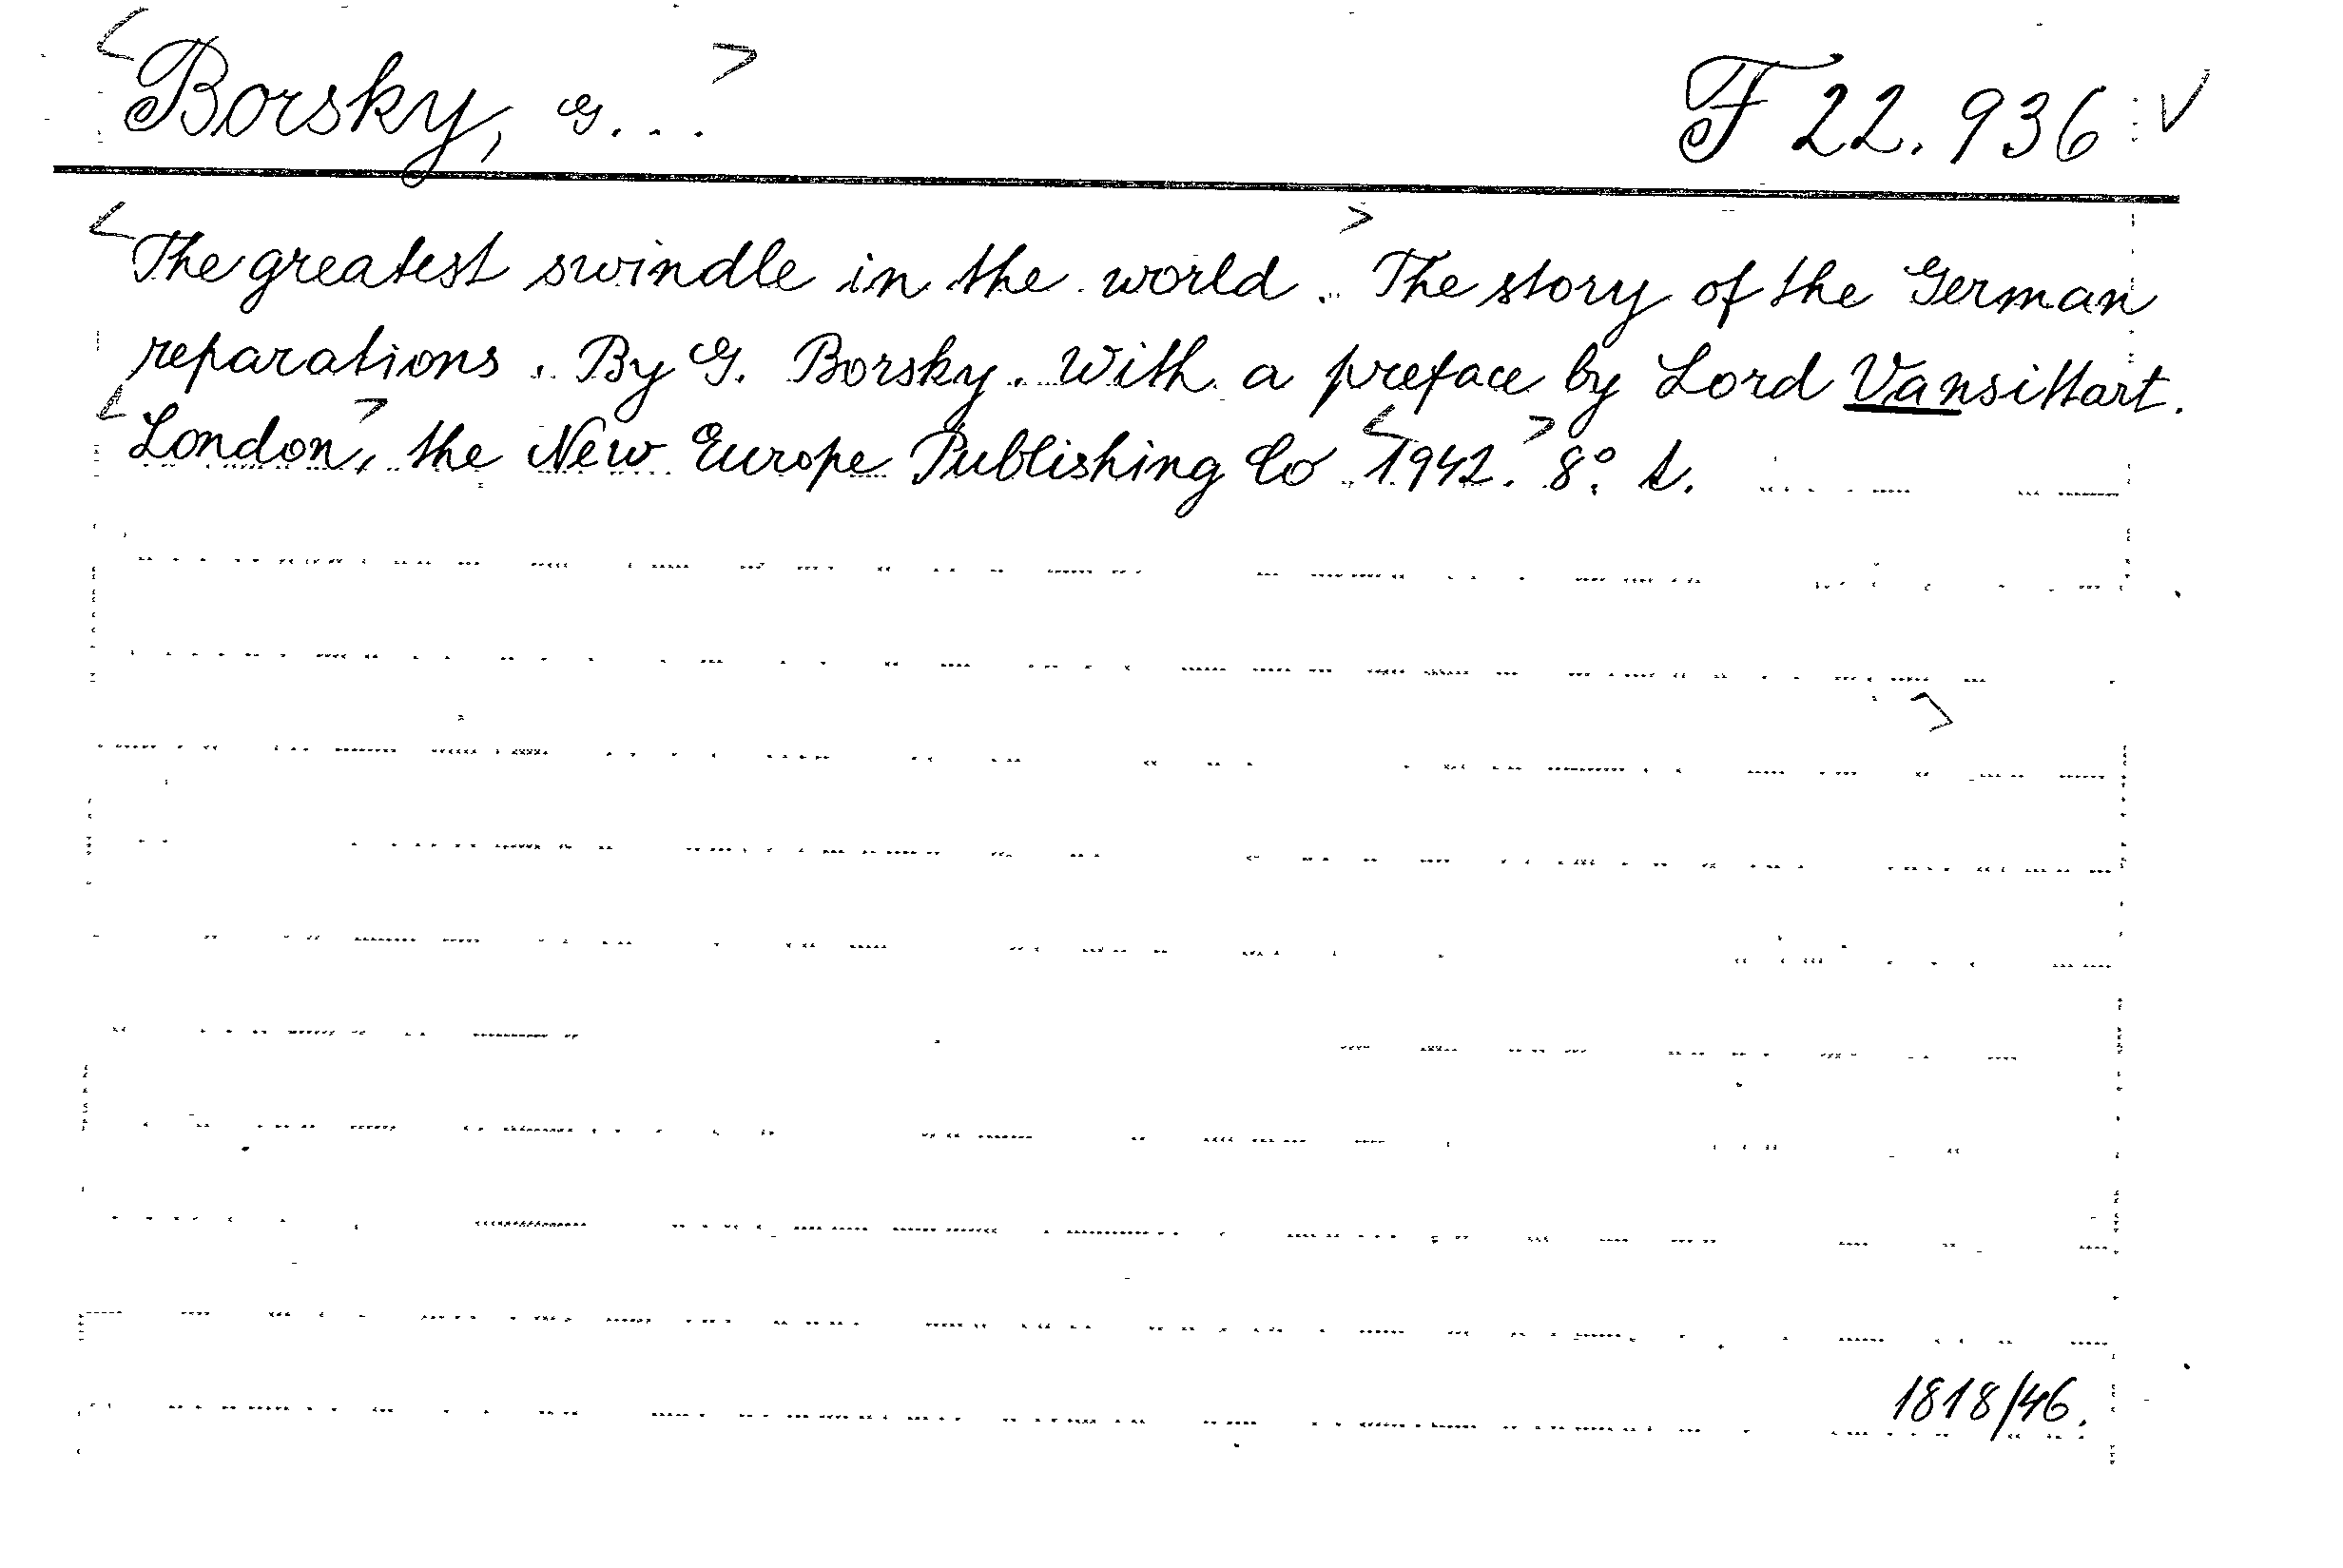 <Borsky, G...> F 22.936 V
<The greatest swindle in the world.> The story of the German
reparations. By G. Borsky. With a preface by Lord Vansittart.
<London>, the New Europe Publishing Co <1942.> 8°.
1818/46.